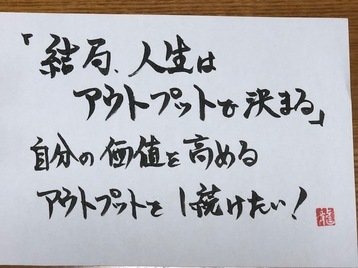 「結局、人生は
アウトプットで決まる」
自分の価値を高める
アウトプットを続けたい!
龍